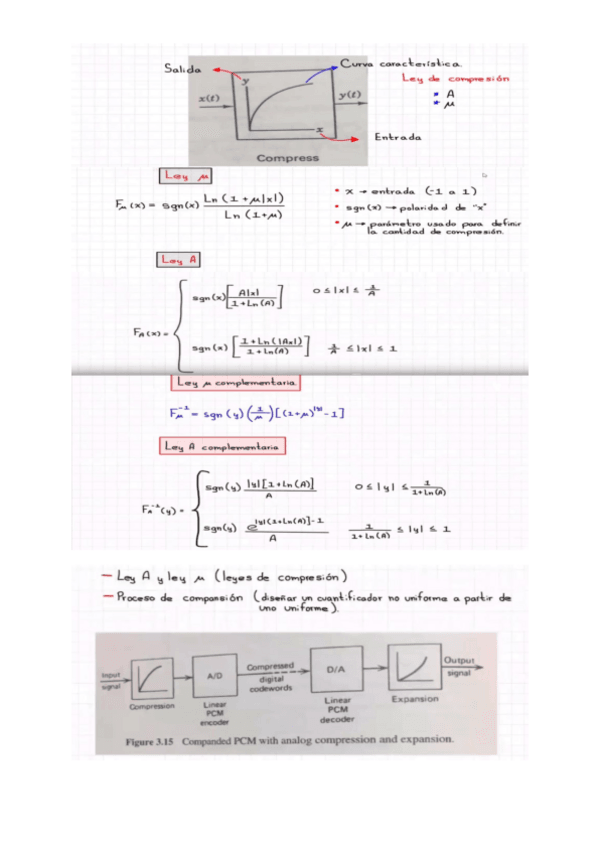 Salida
Curva característica.
Ley de compresión
* A
* μ
y
x(t)
y(t)
x
Entrada
Compress
Ley μ
Fμ(x) = sgn(x) Ln(1+μ|x|) / Ln(1+μ)
• x → entrada (-1 a 1)
• sgn(x) → polaridad de "x"
• μ → parámetro usado para definir
la cantidad de compresión.
Ley A
FA(x) =
sgn(x) [A|x| / 1+Ln(A)] 0 ≤ |x| ≤ 1/A
sgn(x) [1+Ln(|Ax|) / 1+Ln(A)] 1/A ≤ |x| ≤ 1
Ley μ complementaria.
Fμ⁻¹ = sgn(y) (1/μ) [(1+μ)^|y| - 1]
Ley A complementaria
FA⁻¹(y) =
sgn(y) |y|[1+Ln(A)] / A 0 ≤ |y| ≤ 1 / 1+Ln(A)
sgn(y) e^|y|(1+Ln(A)]-1 / A 1 / 1+Ln(A) ≤ |y| ≤ 1
— Ley A y ley μ (leyes de compresión)
— Proceso de compansión (diseñar un cuantificador no uniforme a partir de
uno uniforme).
Input
signal
Compression
A/D
Linear
PCM
encoder
Compressed
digital
codewords
D/A
Linear
PCM
decoder
Expansion
Output
signal
Figure 3.15 Companded PCM with analog compression and expansion.